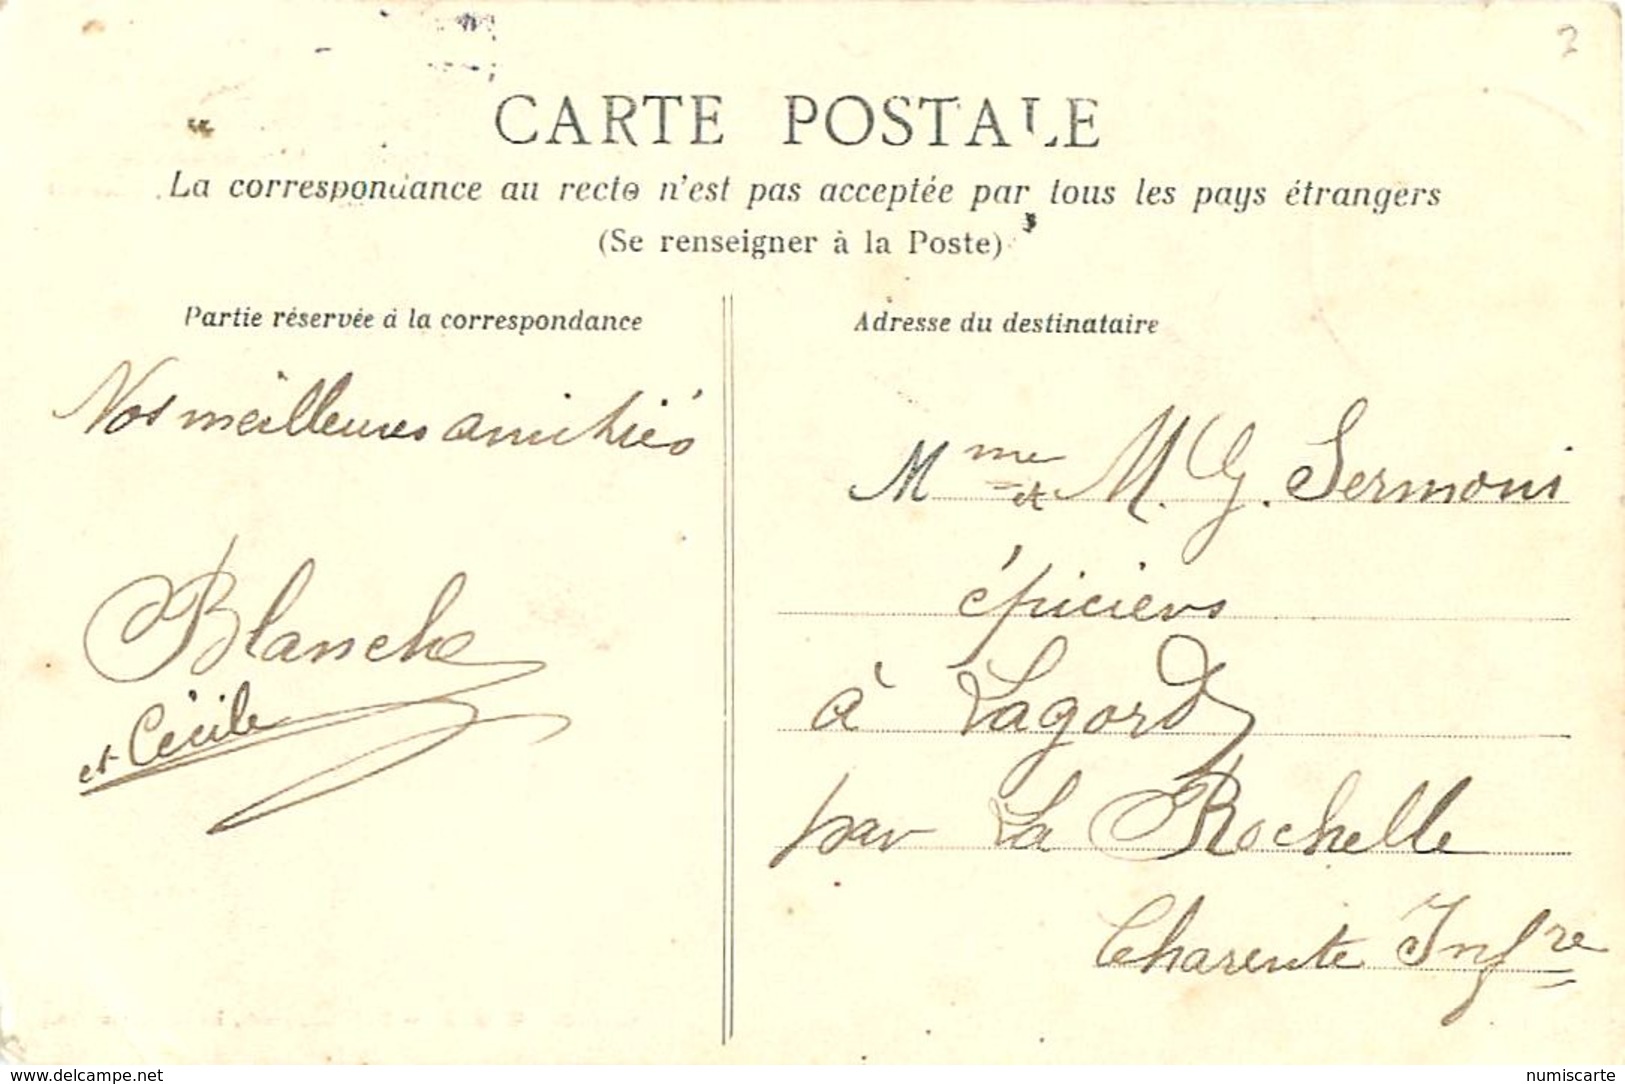 2
CARTE POSTALE
La correspondance au recto n'est pas acceptée par tous les pays étrangers
(Se renseigner à la Poste)
Partie réservée à la correspondance
Nos meilleures amitiés
Blanche
et Cécile
Adresse du destinataire
Mme et M. G. Sermoni
épiciers
à Lagord
par La Rochelle
Charente Infre
www.delcampe.net
numiscarte